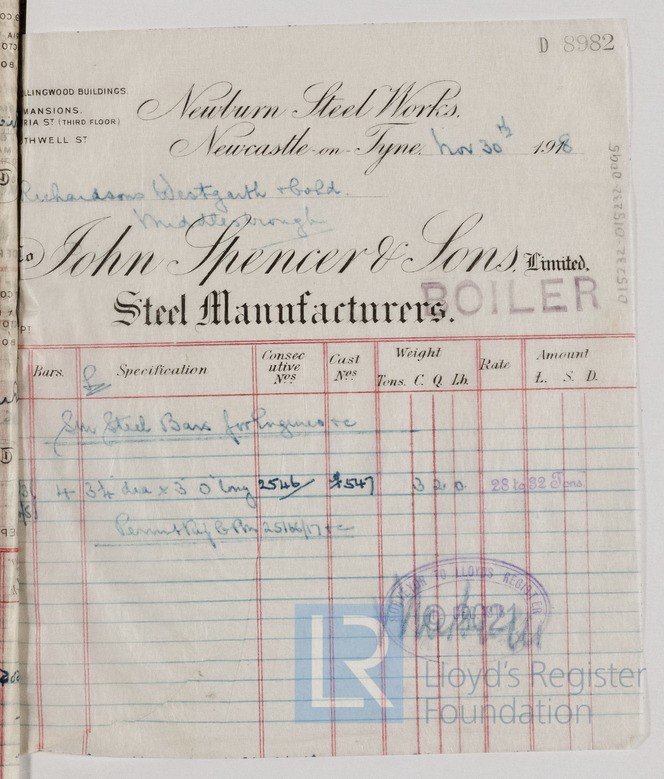 D 8982
LLINGWOOD BUILDINGS.
MANSIONS.
RIA ST (THIRD FLOOR)
THWELL ST
Newburn Steel Works.
Newcastle-on-Tyne. Nov 30th 1918
Richardsons Westgarth & Co Ld.
Middlesbrough
To John Spencer & Sons, Limited.
Steel Manufacturers.
BOILER
015232-015232-0095
Bars. Specification Consecutive Nos Cast Nos Weight Tons. C. Q. Lb. Rate Amount £. S. D.
Steel Bars for Engines &c
4 3¼ dia x 3' 0" long 2546 547 3 2 0 28 to 32 Tons
Permit Ref
SURVEYOR TO LLOYDS REGISTER
LR
Lloyd's Register
Foundation